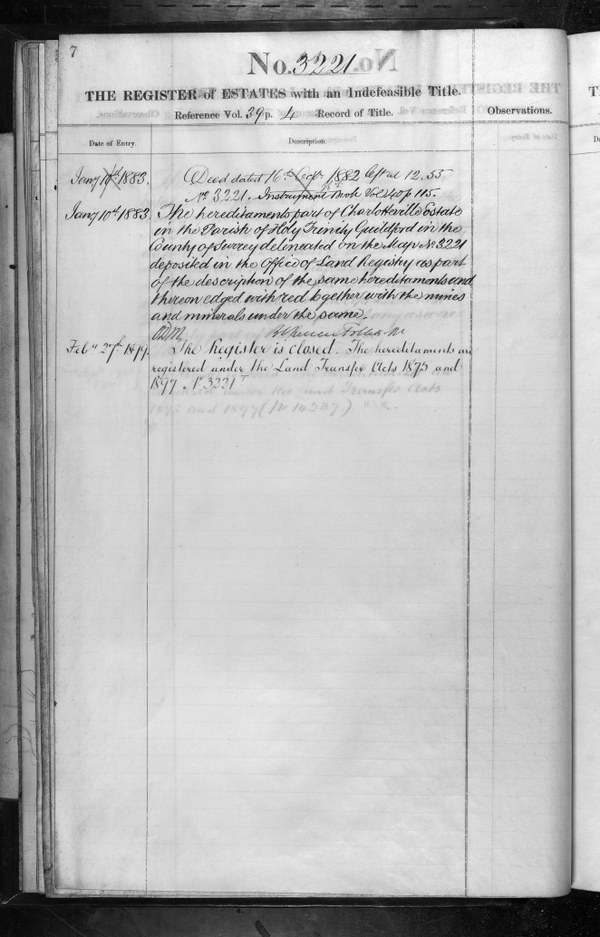 7
No. 3221
THE REGISTER of ESTATES with an Indefeasible Title.
Reference Vol. 39 p. 4 Record of Title.
Observations.
Date of Entry.
Description.
Jany 10th 1883.
Deed dated 16th Septr 1882 left at 12.55
No 3221. Instrument Book Vol 240 p 115.
Jany 10th 1883.
The hereditaments part of Charlotteville Estate
in the Parish of Holy Trinity Guildford in the
County of Surrey delineated on the Map No 3221
deposited in the Office of Land Registry as part
of the description of the same hereditaments and
thereon edged with red together with the mines
and minerals under the same.
Feby 27th 1899.
The Register is closed. The hereditaments are
registered under the Land Transfer Acts 1875 and
1897 No 3221T